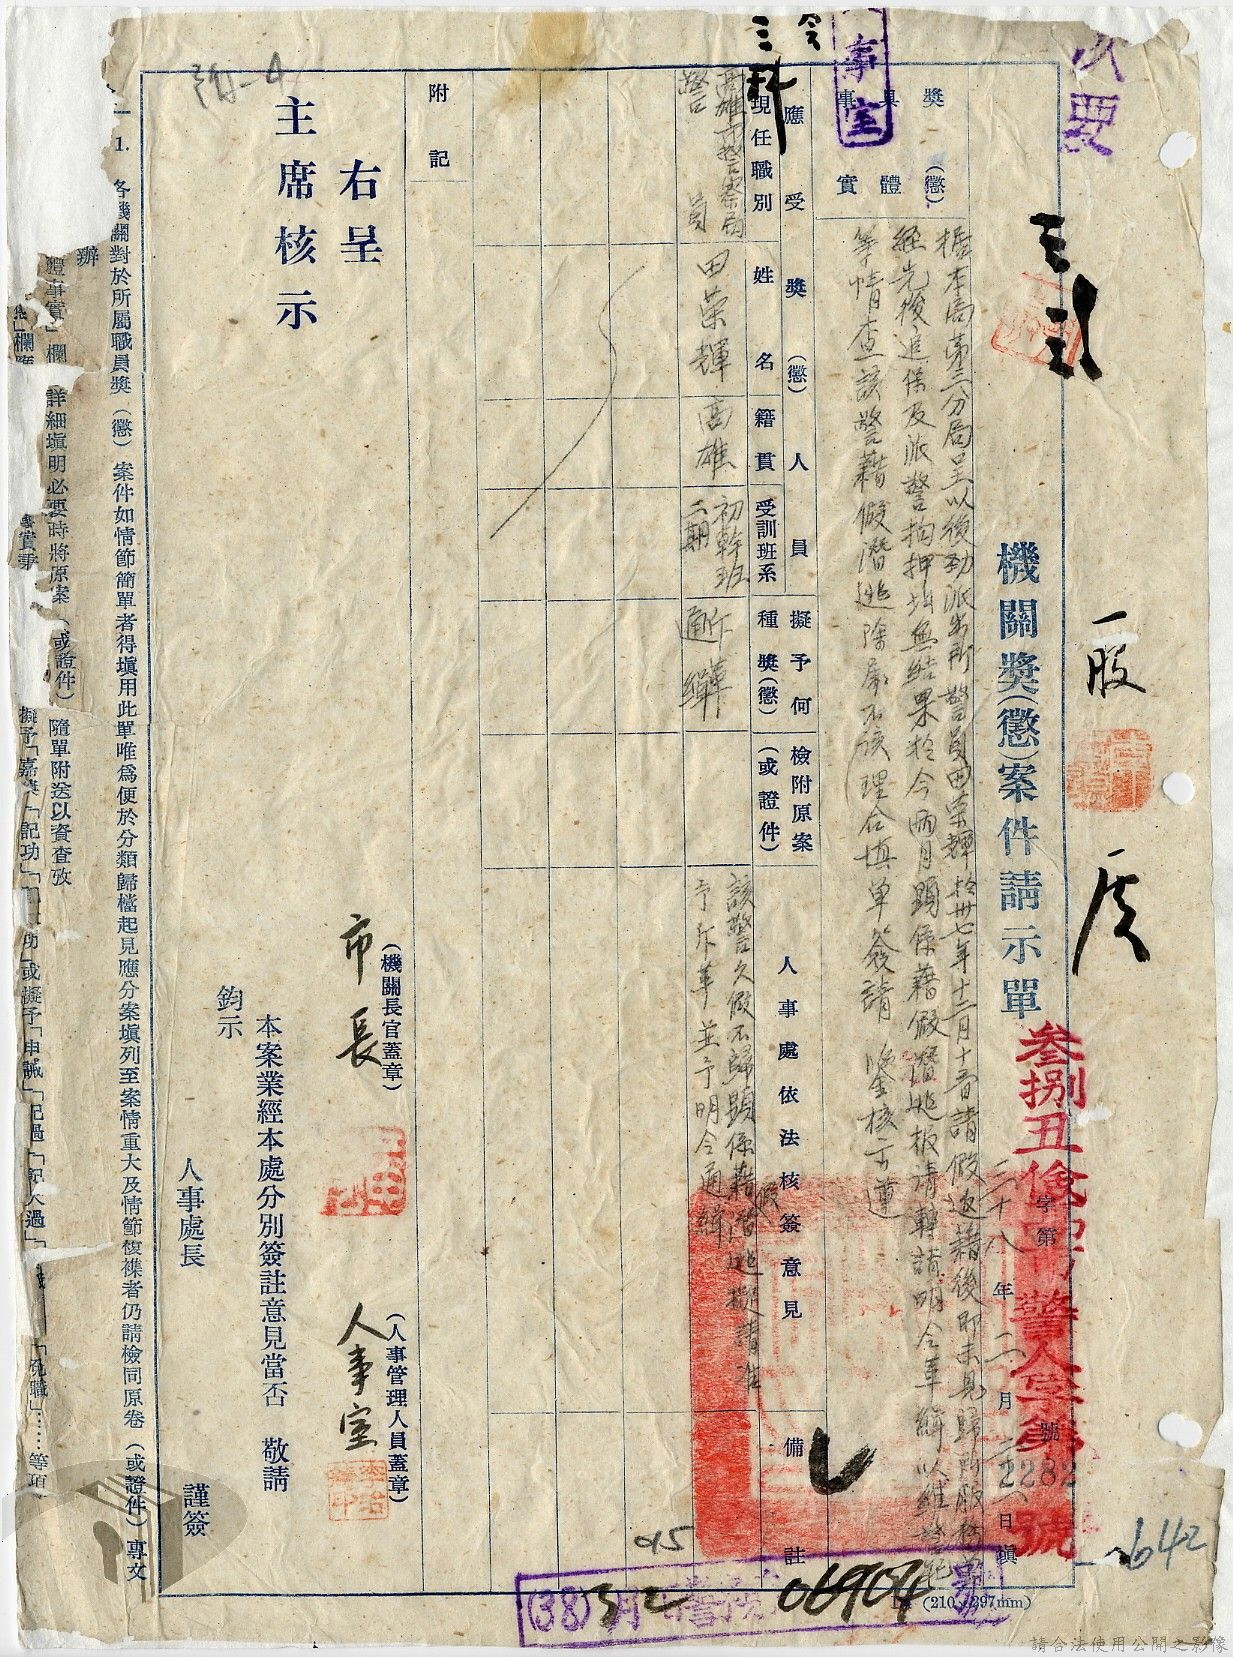 機關獎(懲)案件請示單
字第 2282 號
三十八年二月二八日填
獎(懲)
事具體實
據本局第三分局呈以後勁派出所警員田榮輝於卅七年十二月十五日請假返籍後即未見歸所服務
經先後追保及派警拘押均無結果於今兩月顯係藉假潛逃報請轉請明令革緝以維警紀
等情查該警藉假潛逃除屬不該理合填單簽請 鑒核示遵
應受獎(懲)人員
現任職別
姓名
籍貫
受訓班系
擬予何種獎(懲)
檢附原案(或證件)
人事處依法核簽意見
備註
高雄市警察局
警員
田榮輝
高雄
初幹班
二期
斥革
通緝
該警久假不歸顯係藉假潛逃擬請准
予斥革並予明令通緝
附記
右呈
主席核示
(機關長官蓋章)
市長
(人事管理人員蓋章)
人事室
本案業經本處分別簽註意見當否 敬請
鈞示
人事處長
謹簽
1. 各機關對於所屬職員獎(懲)案件如情節簡單者得填用此單唯為便於分類歸檔起見應分案填列至案情重大及情節複襍者仍請檢同原卷(或證件)專文
辦
體事實」欄
詳細填明必要時將原案(或證件)隨單附送以資查攷
擬予「嘉獎」「記功」
功」或擬予「申誡」「記過」「記大過」
「免職」……等項
(210×297mm)
三科
事室
次要
一股
叁捌丑
警人
號
642
(38)
06904
請合法使用公開之影像